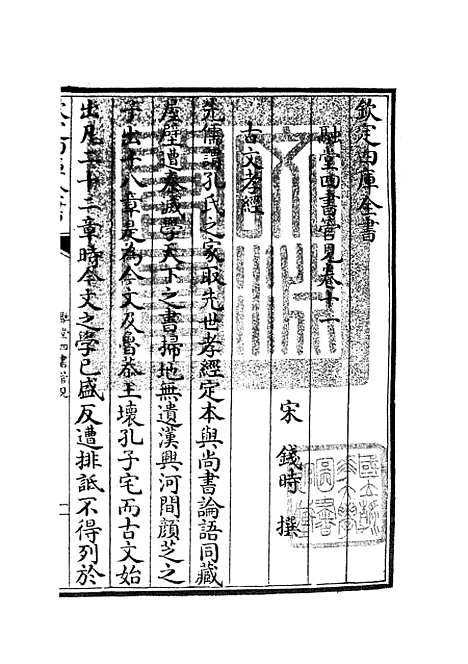 欽定四庫全書
融堂四書管見卷十一
宋 錢時 撰
古文孝經
先儒謂孔氏之家取先世孝經定本與尚書論語同藏
屋壁遭秦滅學天下之書掃地無遺漢興河間顏芝之
子出十八章是為今文及魯恭王壞孔子宅而古文始
出凡二十二章時今文之學已盛反遭排詆不得列於
融堂四書管見
一